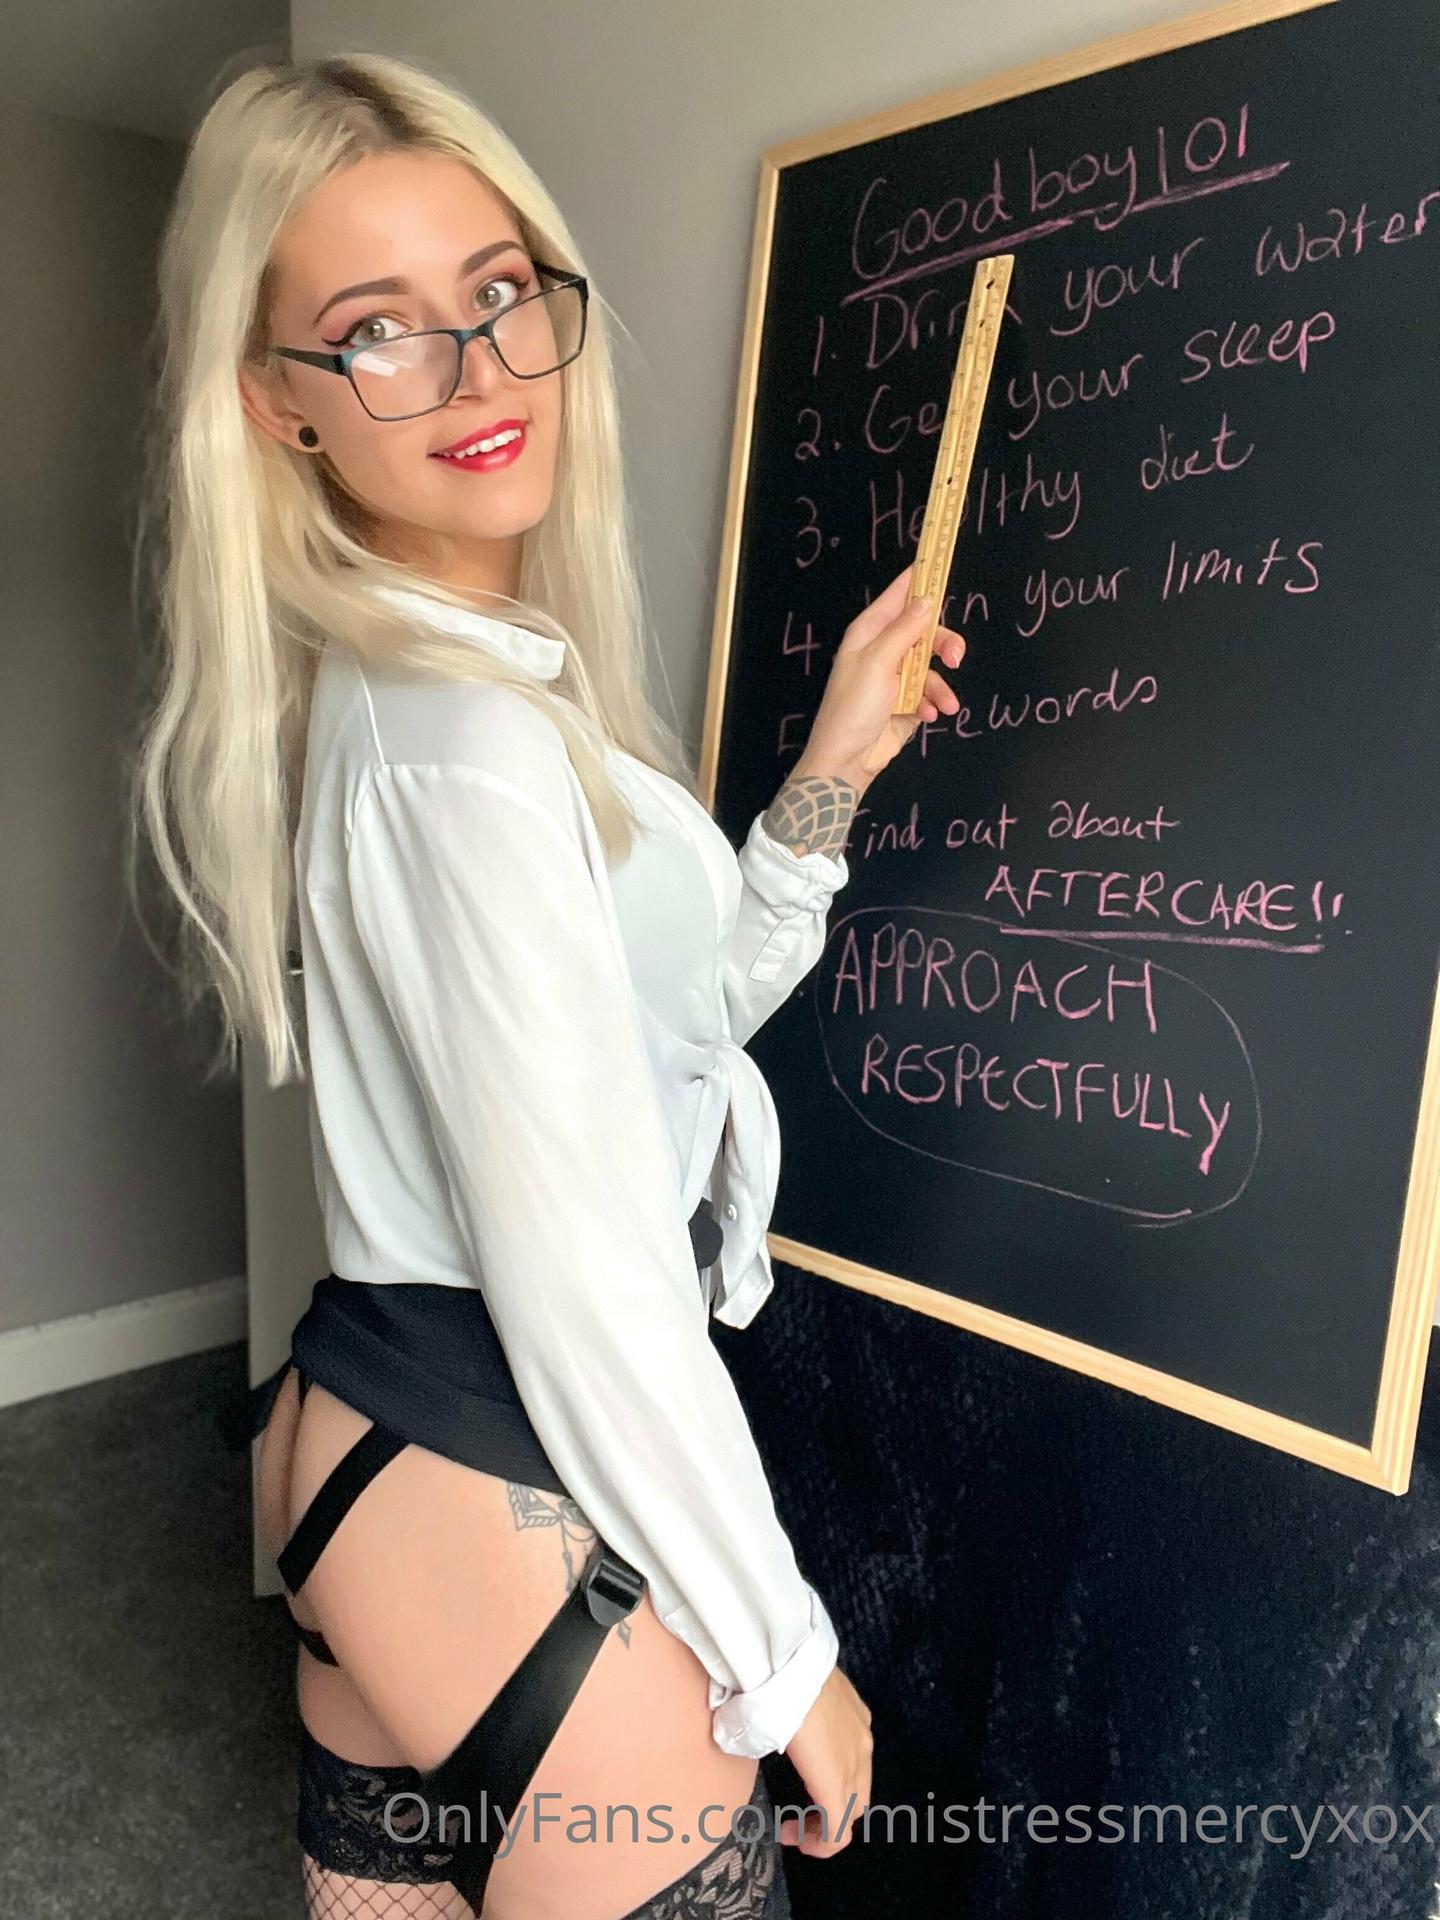 Good boy 101
1. Drink your water
2. Get your sleep
3. Healthy diet
4 your limits
Find out about
AFTERCARE!!
APPROACH
RESPECTFULLY
OnlyFans.com/mistressmercyxox